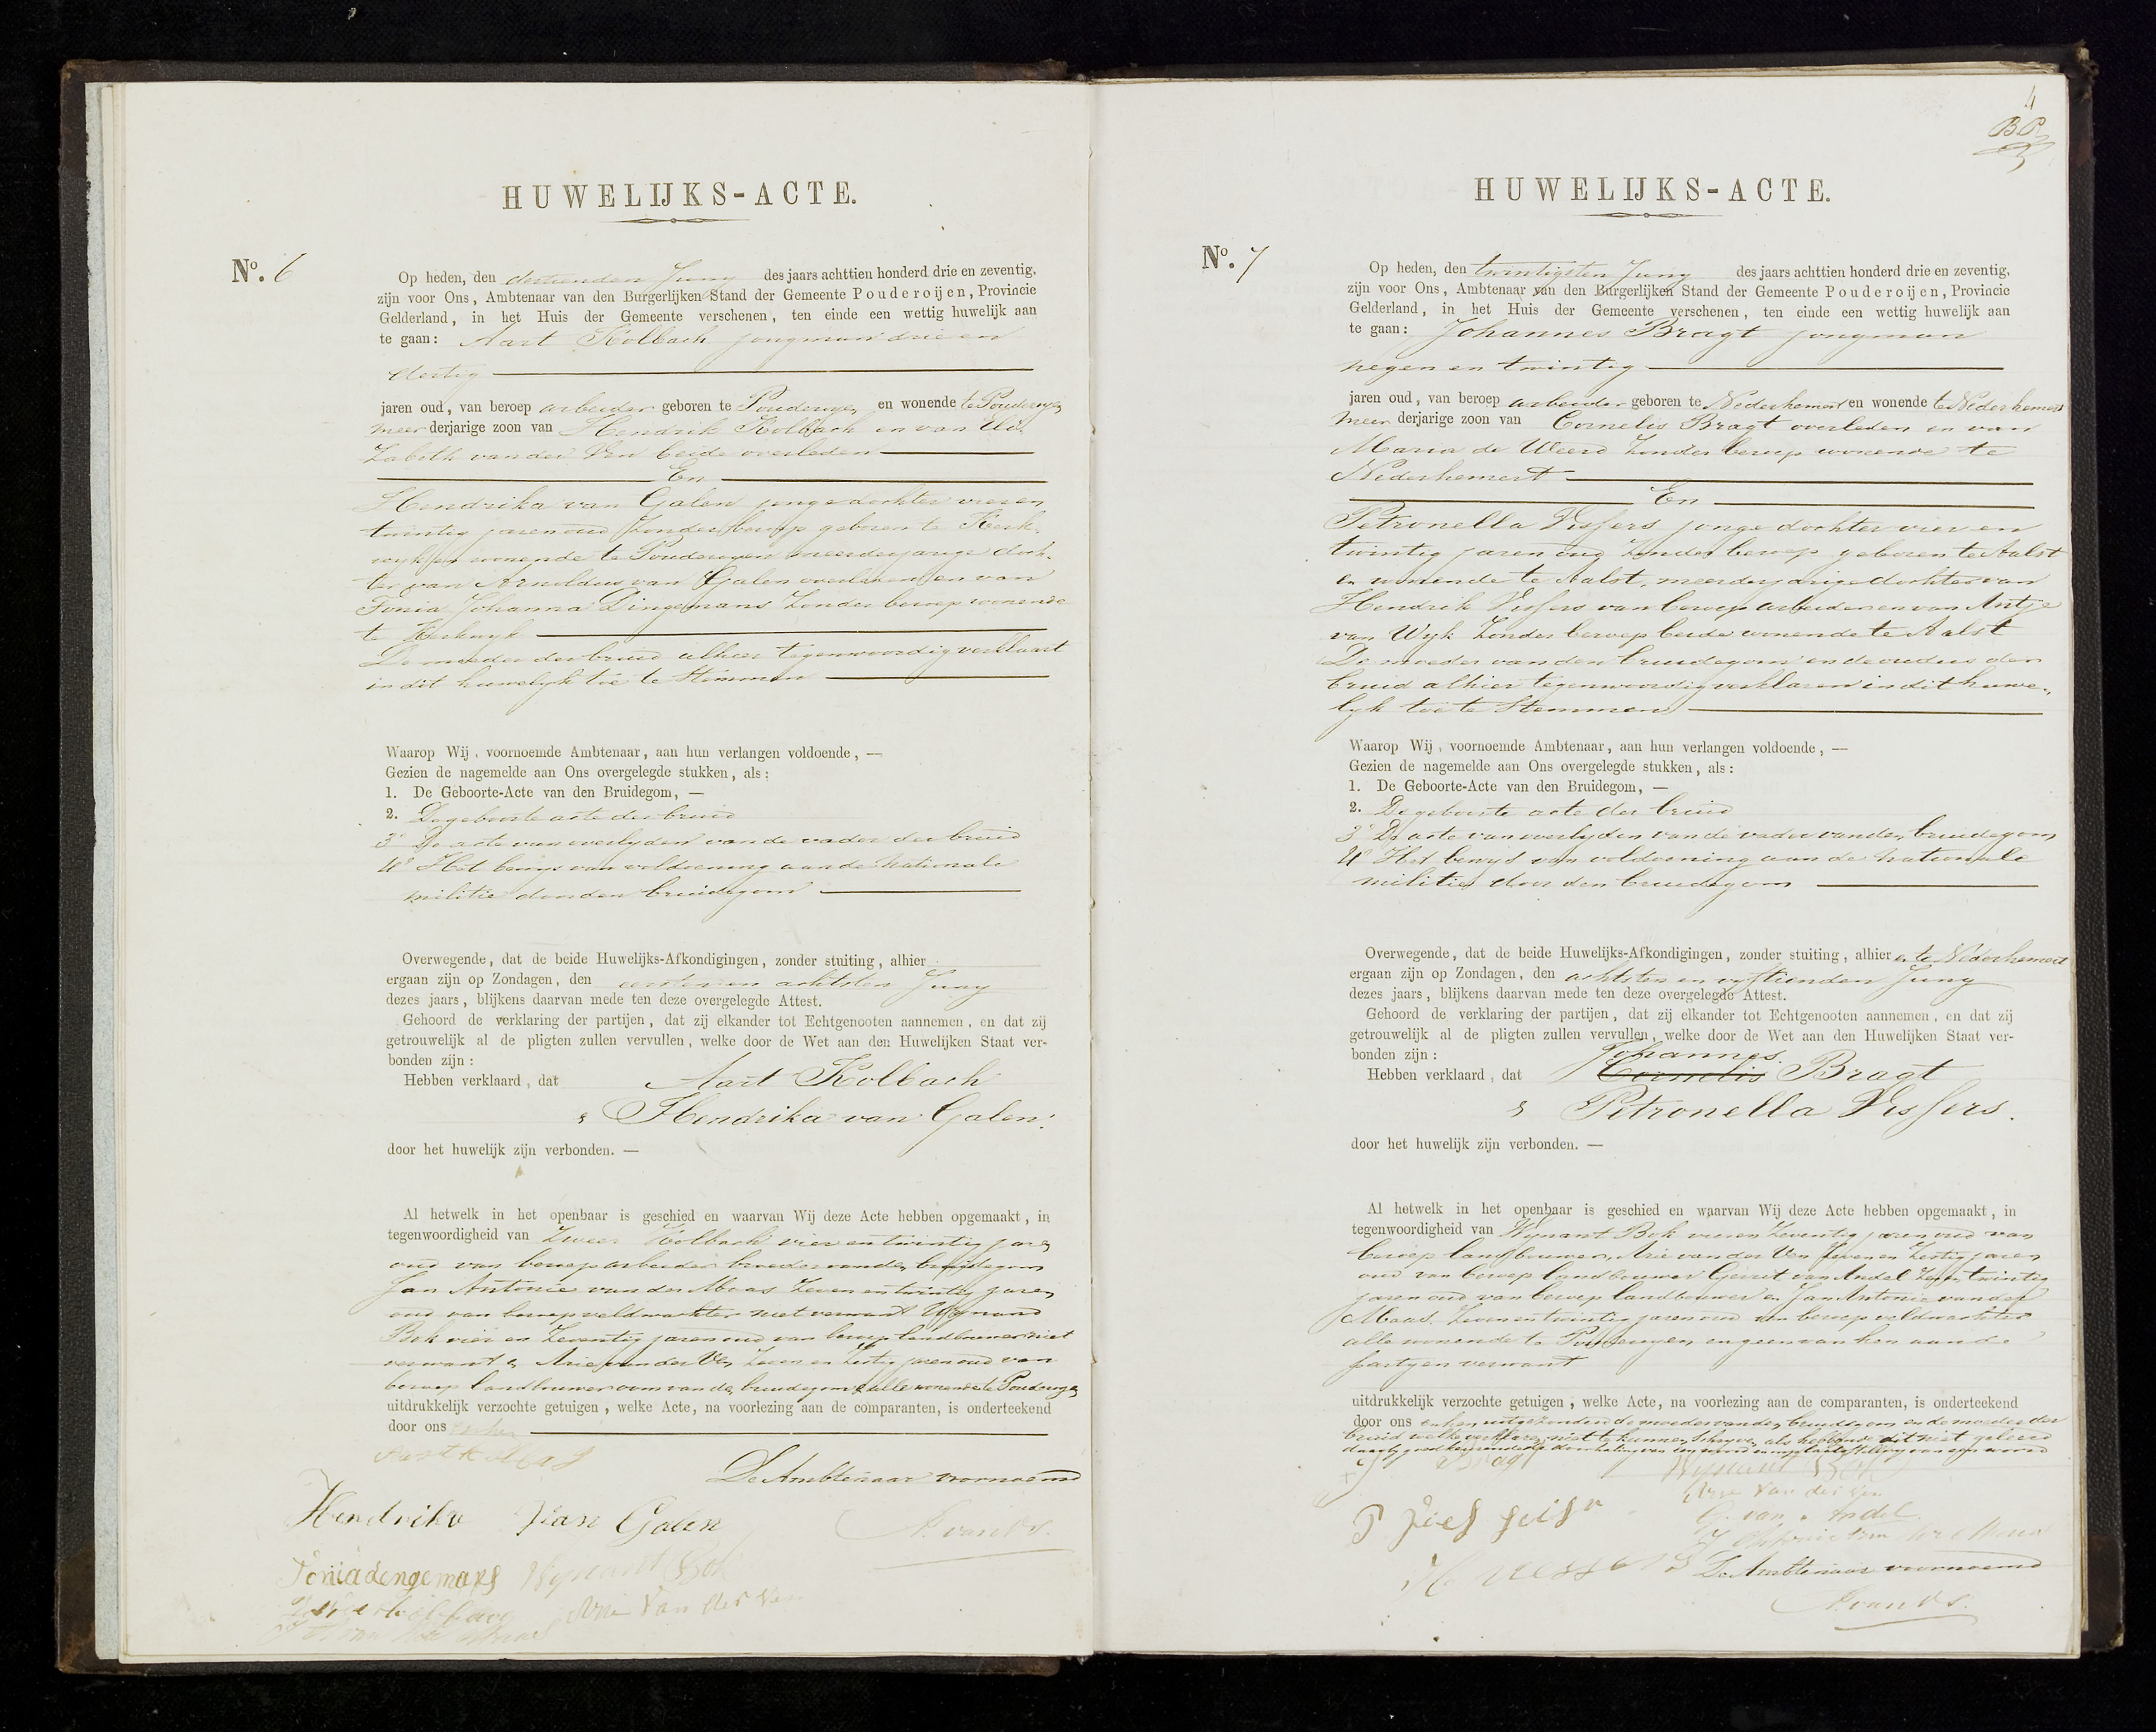 HUWELIJKS-ACTE.
No. 6
Op heden, den dertienden Juny des jaars achttien honderd drie en zeventig,
zijn voor Ons, Ambtenaar van den Burgerlijken Stand der Gemeente Pouderoijen, Provincie
Gelderland, in het Huis der Gemeente verschenen, ten einde een wettig huwelijk aan
te gaan: Aart Kolbach jongman drie en
dertig
jaren oud, van beroep arbeider geboren te Pouderoyen en wonende te Pouderoyen
meer derjarige zoon van Hendrik Kolbach en van Eli-
zabeth van der Ven beide overleden
En
Hendrika van Galen jonge dochter vier en
twintig jaren oud zonder beroep geboren te Kerk-
wyk en wonende te Pouderoyen meerderjarige doch-
ter van Arnoldus van Galen overleden en van
Tonia Johanna Dingemans zonder beroep wonende
te Kerkwyk
De moeder der bruid alhier tegenwoordig verklaart
in dit huwelyk toe te Stemmen
Waarop Wij, voornoemde Ambtenaar, aan hun verlangen voldoende, —
Gezien de nagemelde aan Ons overgelegde stukken, als:
1. De Geboorte-Acte van den Bruidegom, —
2. De geboorte acte der bruid
3e De acte van overlyden van de vader der bruid
4e Het bewys van voldoening aan de Nationale
militie door den bruidegom
Overwegende, dat de beide Huwelijks-Afkondigingen, zonder stuiting, alhier
ergaan zijn op Zondagen, den eersten en achtsten Juny
dezes jaars, blijkens daarvan mede ten deze overgelegde Attest.
Gehoord de verklaring der partijen, dat zij elkander tot Echtgenooten aannemen, en dat zij
getrouwelijk al de pligten zullen vervullen, welke door de Wet aan den Huwelijken Staat ver-
bonden zijn:
Hebben verklaard, dat Aart Kolbach
& Hendrika van Galen.
door het huwelijk zijn verbonden. —
Al hetwelk in het openbaar is geschied en waarvan Wij deze Acte hebben opgemaakt, in
tegenwoordigheid van Zweer Kolbach vier en twintig jaren
oud van beroep arbeider broeder van den bruidegom
Jan Antonie van der Maas Zeven en twintig jaren
oud van beroep veldwachter niet verwant Wynand
Bok vier en Zeventig jaren oud van beroep landbouwer niet
verwant en Arie van der Ven Zeven en Zestig jaren oud van
beroep landbouwer oom van den bruidegom alle wonende te Pouderoyen
uitdrukkelijk verzochte getuigen, welke Acte, na voorlezing aan de comparanten, is onderteekend
door ons en hen
Aart Kolbag
De Ambtenaar voornoemd
Hendrika van Galen
Toniadengemans Wynant Bok
Arie Van der Ven
4
BP
HUWELIJKS-ACTE.
No. 7
Op heden, den twintigsten Juny des jaars achttien honderd drie en zeventig,
zijn voor Ons, Ambtenaar van den Burgerlijken Stand der Gemeente Pouderoijen, Provincie
Gelderland, in het Huis der Gemeente verschenen, ten einde een wettig huwelijk aan
te gaan: Johannes Bragt jongman
negen en twintig
jaren oud, van beroep arbeider geboren te Nederhemert en wonende te Nederhemert
meer derjarige zoon van Cornelis Bragt overleden en van
Maria de Weerd zonder beroep wonende te
Nederhemert
En
Petronella Vissers jonge dochter vier en
twintig jaren oud zonder beroep geboren te Aalst
en wonende te Aalst, meerderjarige dochter van
Hendrik Vissers van beroep arbeider en van Antje
van Wyk zonder beroep beide wonende te Aalst
De moeder van den bruidegom en de ouders der
bruid alhier tegenwoordig verklaren in dit huwe-
lyk toe te Stemmen
Waarop Wij, voornoemde Ambtenaar, aan hun verlangen voldoende, —
Gezien de nagemelde aan Ons overgelegde stukken, als:
1. De Geboorte-Acte van den Bruidegom, —
2. De geboorte acte der bruid
3e De acte van overlyden van de vader van den bruidegom
4e Het bewys van voldoening aan de nationale
militie door den bruidegom
Overwegende, dat de beide Huwelijks-Afkondigingen, zonder stuiting, alhier en te Nederhemert
ergaan zijn op Zondagen, den achtsten en vyftienden Juny
dezes jaars, blijkens daarvan mede ten deze overgelegde Attest.
Gehoord de verklaring der partijen, dat zij elkander tot Echtgenooten aannemen, en dat zij
getrouwelijk al de pligten zullen vervullen, welke door de Wet aan den Huwelijken Staat ver-
bonden zijn:
Johannes
Hebben verklaard, dat Cornelis Bragt
& Petronella Vissers.
door het huwelijk zijn verbonden. —
Al hetwelk in het openbaar is geschied en waarvan Wij deze Acte hebben opgemaakt, in
tegenwoordigheid van Wynant Bok vier en Zeventig jaren oud van
beroep landbouwer, Arie van der Ven Zeven en Zestig jaren
oud van beroep landbouwer Gerrit van Andel Zes en twintig
jaren oud van beroep landbouwer en Jan Antonie van der
Maas Zeven en twintig jaren oud van beroep veldwachter
alle wonende te Pouderoyen en geen van hen aan de
partyen verwant
uitdrukkelijk verzochte getuigen, welke Acte, na voorlezing aan de comparanten, is onderteekend
door ons en hen uitgezonderd de moeder van den bruidegom en de moeder der
bruid welke verklaren niet te kunnen Schryven als hebbende dit niet geleerd
Bragt
Wynant Bok
Arie Van der Ven
G. van Andel
De Ambtenaar voornoemd